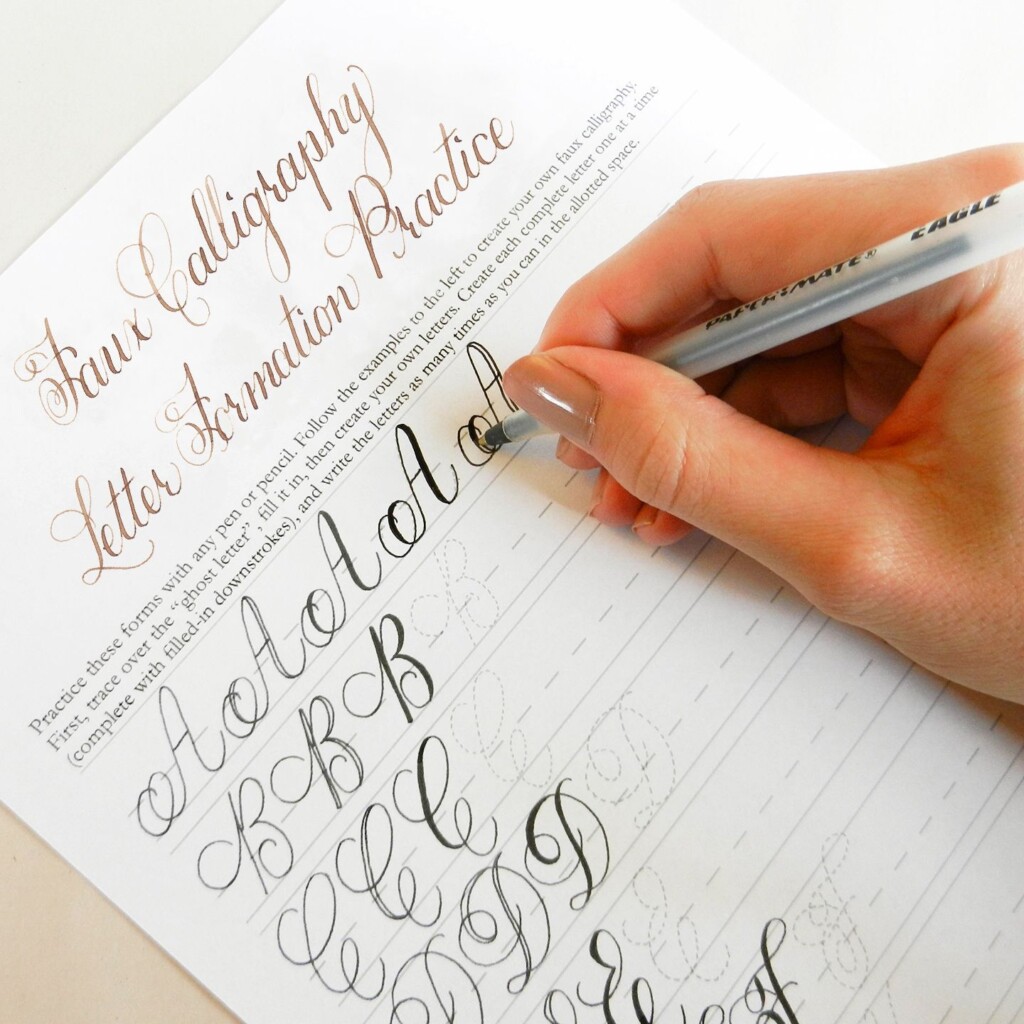 Faux Calligraphy
Letter Formation Practice
Practice these forms with any pen or pencil. Follow the examples to the left to create your own faux calligraphy.
First, trace over the "ghost letter", fill it in, then create your own letters. Create each complete letter one at a time
(complete with filled-in downstrokes), and write the letters as many times as you can in the allotted space.
A A A A A
B B B B
C C C C
D D D D
E E
F F
PAPER:MATE® EAGLE